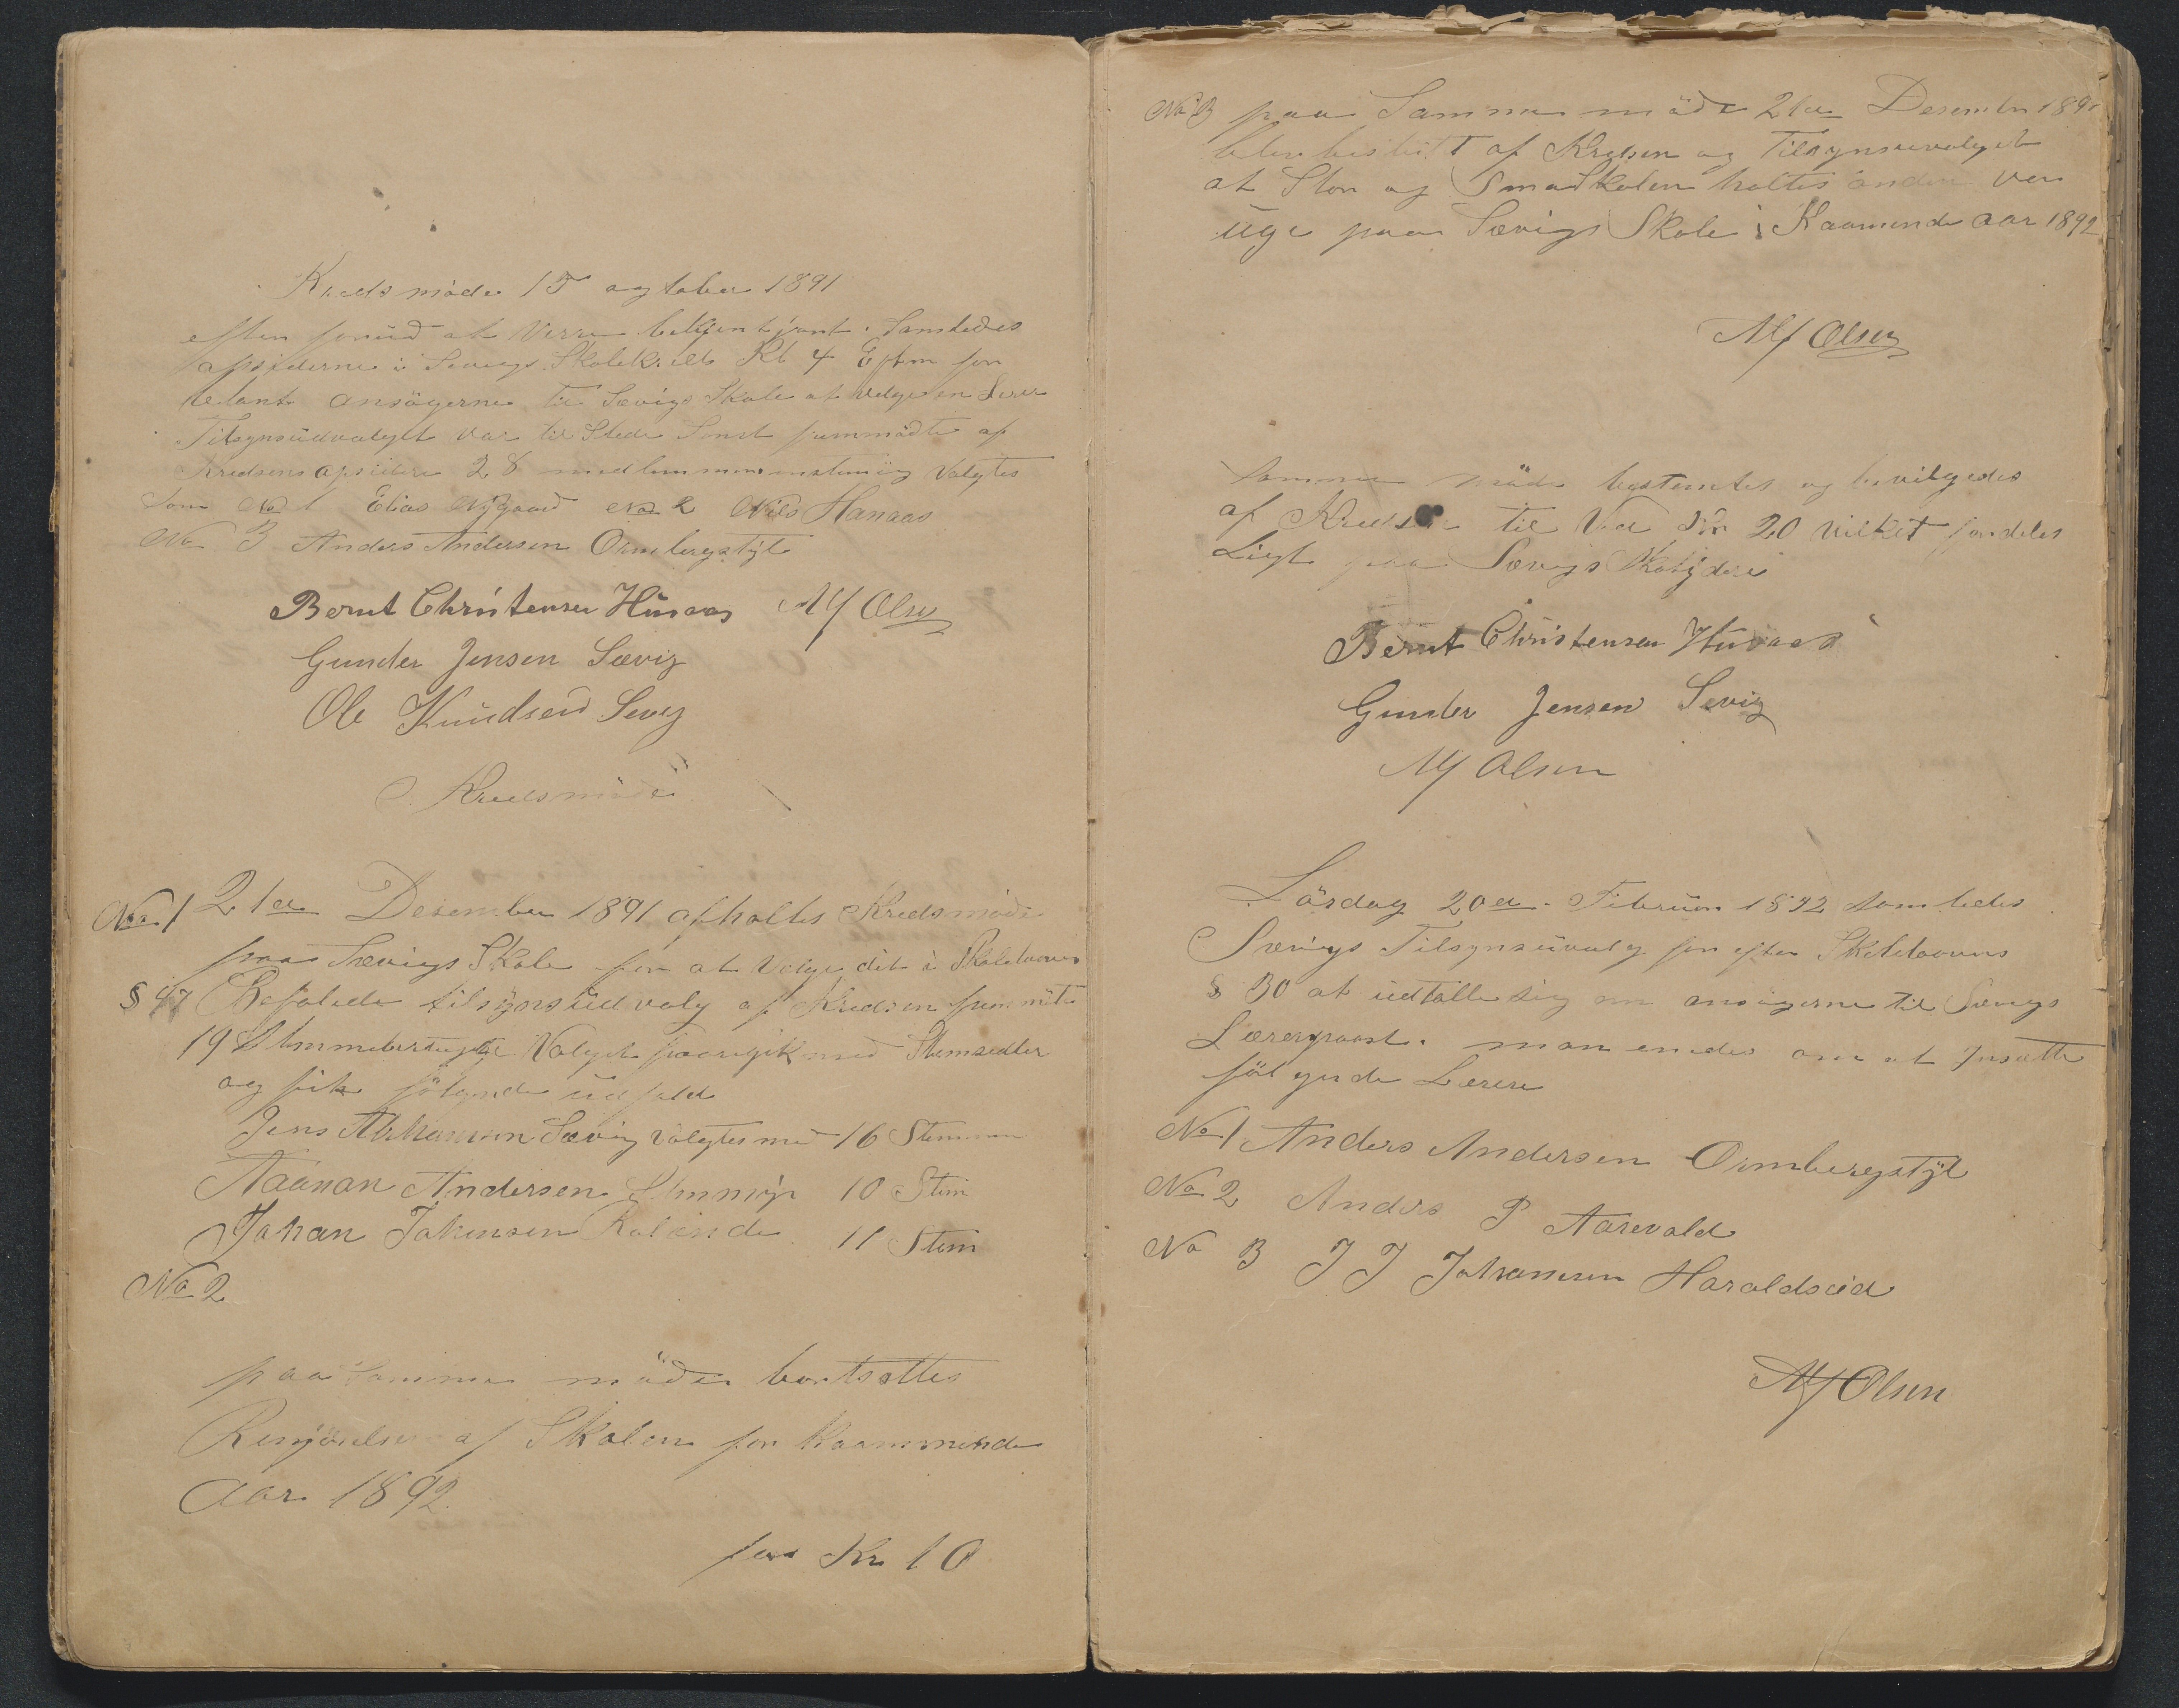 Kredsmöde 15 ogtober 1891
efter forud at Verre bekjentjort. Samledes
opsiderne i Sævigs Skolekreds Kl 4 Eftm for
blant ansögerne til Sævigs Skole at velge en Lerer
Tilsynsudvalget var til Stede Samt fremmödte af
Kredsens opsidere 28 medlemmer valgtes
Som No 1 Elias Nÿgaard No 2 Nils Hanaas
No 3 Anders Andersen Ormbergstÿl
Bernt Christensen Husaas Alf Olsen
Gunder Jensen Sævig
Ole Knudsen Sevig
Kredsmöde
No 1 21de Desember 1891 afholtes Kredsmöde
paa Sævigs Skole for at Velge det i Skoleloven
§ 47 Befalede tilsÿnsudvalg af Kredsen fremmöte
19 Stemmeberettigede Valget foregik med Stemsedler
og fik fölgende udfald
Jens Abrahamsen Sævig valgtes med 16 Stemmer
Aanan Andersen 10 Stem
Johan Johnsen 11 Stem
No 2
paa Samme möde bortsattes
Rengörelsen af Skolen for Kaammende
Aar 1892
for Kr 10
No 3 paa Samme möde 21de Desember 1891
blev beslutt af Kredsen og Tilsynsuvalget
at Stor og Smaaskolen holtes anden ver
uge paa Sævigs Skole i Kaamende aar 1892
Alf Olsen
Samme möde bestemtes og bevilgedes
af Kredsen til Ved Kr 20 vilket fordeles
Ligt paa Sævigs
Bernt Christensen Husaas
Gunder Jensen Sevig
Alf Olsen
Lördag 20de Februar 1892 Samledes
Sævigs Tilsynsuvalg for efter Skoleloovens
§ 30 at udtalle sig om ansögerne til Sævigs
Lærerpoost. man enedes om at Insætte
fölgende Lærere
No 1 Anders Andersen Ormbergstÿl
No 2 Anders P Aarevald
No 3 J J Johannesen Haraldseid
Alf Olsen